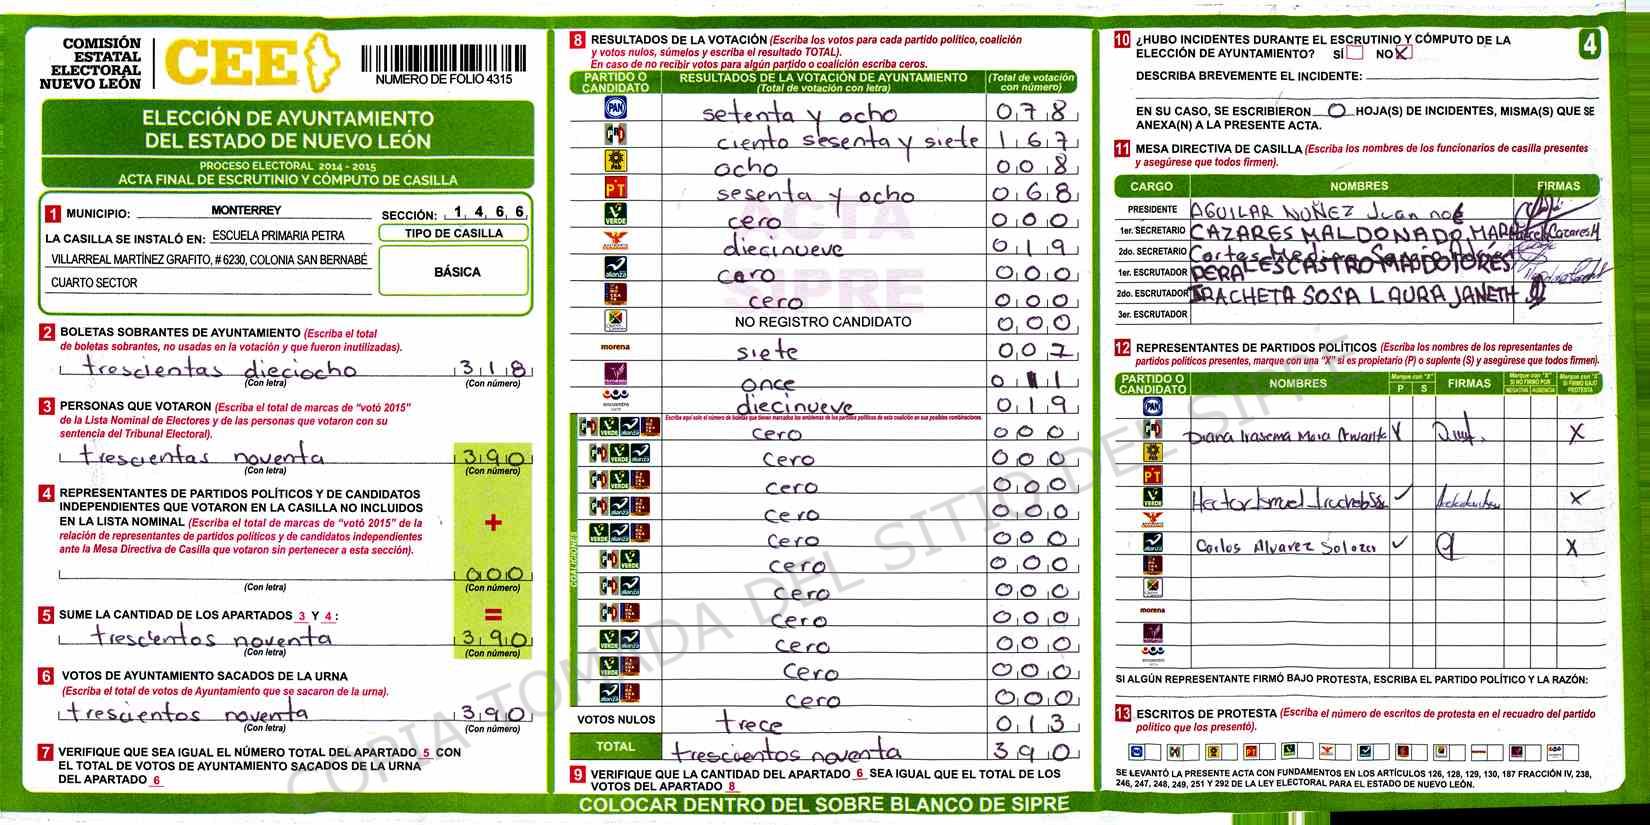 COMISIÓN
ESTATAL
ELECTORAL
NUEVO LEÓN
CEE
NUMERO DE FOLIO 4315
ELECCIÓN DE AYUNTAMIENTO
DEL ESTADO DE NUEVO LEÓN
PROCESO ELECTORAL 2014 - 2015
ACTA FINAL DE ESCRUTINIO Y CÓMPUTO DE CASILLA
1 MUNICIPIO: MONTERREY SECCIÓN: 1 4 6 6
LA CASILLA SE INSTALÓ EN: ESCUELA PRIMARIA PETRA
VILLARREAL MARTÍNEZ GRAFITO, # 6230, COLONIA SAN BERNABÉ
CUARTO SECTOR
TIPO DE CASILLA
BÁSICA
2 BOLETAS SOBRANTES DE AYUNTAMIENTO (Escriba el total
de boletas sobrantes, no usadas en la votación y que fueron inutilizadas).
trescientas dieciocho 3 1 8
(Con letra) (Con número)
3 PERSONAS QUE VOTARON (Escriba el total de marcas de "votó 2015"
de la Lista Nominal de Electores y de las personas que votaron con su
sentencia del Tribunal Electoral).
trescientas noventa 3 9 0
(Con letra) (Con número)
4 REPRESENTANTES DE PARTIDOS POLÍTICOS Y DE CANDIDATOS
INDEPENDIENTES QUE VOTARON EN LA CASILLA NO INCLUIDOS
EN LA LISTA NOMINAL (Escriba el total de marcas de "votó 2015" de la
relación de representantes de partidos políticos y de candidatos independientes
ante la Mesa Directiva de Casilla que votaron sin pertenecer a esta sección).
+
0 0 0
(Con letra) (Con número)
5 SUME LA CANTIDAD DE LOS APARTADOS 3 Y 4 : =
trescientos noventa 3 9 0
(Con letra) (Con número)
6 VOTOS DE AYUNTAMIENTO SACADOS DE LA URNA
(Escriba el total de votos de Ayuntamiento que se sacaron de la urna).
trescientos noventa 3 9 0
(Con letra) (Con número)
7 VERIFIQUE QUE SEA IGUAL EL NÚMERO TOTAL DEL APARTADO 5 CON
EL TOTAL DE VOTOS DE AYUNTAMIENTO SACADOS DE LA URNA
DEL APARTADO 6
8 RESULTADOS DE LA VOTACIÓN (Escriba los votos para cada partido político, coalición
y votos nulos, súmelos y escriba el resultado TOTAL).
En caso de no recibir votos para algún partido o coalición escriba ceros.
PARTIDO O CANDIDATO RESULTADOS DE LA VOTACIÓN DE AYUNTAMIENTO (Total de votación con letra) (Total de votación con número)
PAN setenta y ocho 0 7 8
PRI ciento sesenta y siete 1 6 7
PRD ocho 0 0 8
PT sesenta y ocho 0 6 8
VERDE cero 0 0 0
diecinueve 0 1 9
alianza cero 0 0 0
cero 0 0 0
NO REGISTRO CANDIDATO 0 0 0
morena siete 0 0 7
once 0 1 1
encuentro diecinueve 0 1 9
Escriba aquí solo el número de boletas que tienen marcados los emblemas de los partidos políticos de esta coalición en sus posibles combinaciones.
COALICIONES
cero 0 0 0
cero 0 0 0
cero 0 0 0
cero 0 0 0
cero 0 0 0
cero 0 0 0
cero 0 0 0
cero 0 0 0
cero 0 0 0
cero 0 0 0
cero 0 0 0
VOTOS NULOS trece 0 1 3
TOTAL trescientos noventa 3 9 0
9 VERIFIQUE QUE LA CANTIDAD DEL APARTADO 6 SEA IGUAL QUE EL TOTAL DE LOS
VOTOS DEL APARTADO 8
COLOCAR DENTRO DEL SOBRE BLANCO DE SIPRE
ACTA
SIPRE
COPIA TOMADA DEL SITIO DEL SIPRE
10 ¿HUBO INCIDENTES DURANTE EL ESCRUTINIO Y CÓMPUTO DE LA
ELECCIÓN DE AYUNTAMIENTO? SÍ NO X
4
DESCRIBA BREVEMENTE EL INCIDENTE:
EN SU CASO, SE ESCRIBIERON 0 HOJA(S) DE INCIDENTES, MISMA(S) QUE SE
ANEXA(N) A LA PRESENTE ACTA.
11 MESA DIRECTIVA DE CASILLA (Escriba los nombres de los funcionarios de casilla presentes
y asegúrese que todos firmen).
CARGO NOMBRES FIRMAS
PRESIDENTE AGUILAR NUÑEZ Juan noé
1er. SECRETARIO CAZARES MALDONADO
2do. SECRETARIO Cortes Medina
1er. ESCRUTADOR PERALES CASTRO MA DOLORES
2do. ESCRUTADOR IRACHETA SOSA LAURA JANETH
3er. ESCRUTADOR
12 REPRESENTANTES DE PARTIDOS POLÍTICOS (Escriba los nombres de los representantes de
partidos políticos presentes, marque con una "X" si es propietario (P) o suplente (S) y asegúrese que todos firmen).
PARTIDO O CANDIDATO NOMBRES Marque con "X" P S FIRMAS Marque con "X" SI NO FIRMÓ POR NEGATIVA AUSENCIA Marque con "X" SI FIRMÓ BAJO PROTESTA
PAN
PRI Diana Irasema Mora X
PRD
PT
VERDE Hector Ismael X
alianza Carlos Alvarez Solazar X
morena
encuentro
SI ALGÚN REPRESENTANTE FIRMÓ BAJO PROTESTA, ESCRIBA EL PARTIDO POLÍTICO Y LA RAZÓN:
13 ESCRITOS DE PROTESTA (Escriba el número de escritos de protesta en el recuadro del partido
político que los presentó).
SE LEVANTÓ LA PRESENTE ACTA CON FUNDAMENTOS EN LOS ARTÍCULOS 126, 128, 129, 130, 187 FRACCIÓN IV, 238,
246, 247, 248, 249, 251 Y 292 DE LA LEY ELECTORAL PARA EL ESTADO DE NUEVO LEÓN.